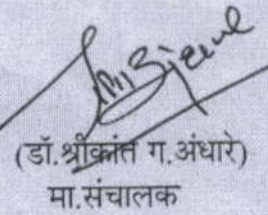 (डॉ.श्रीकांत ग.अंधारे)
मा.संचालक